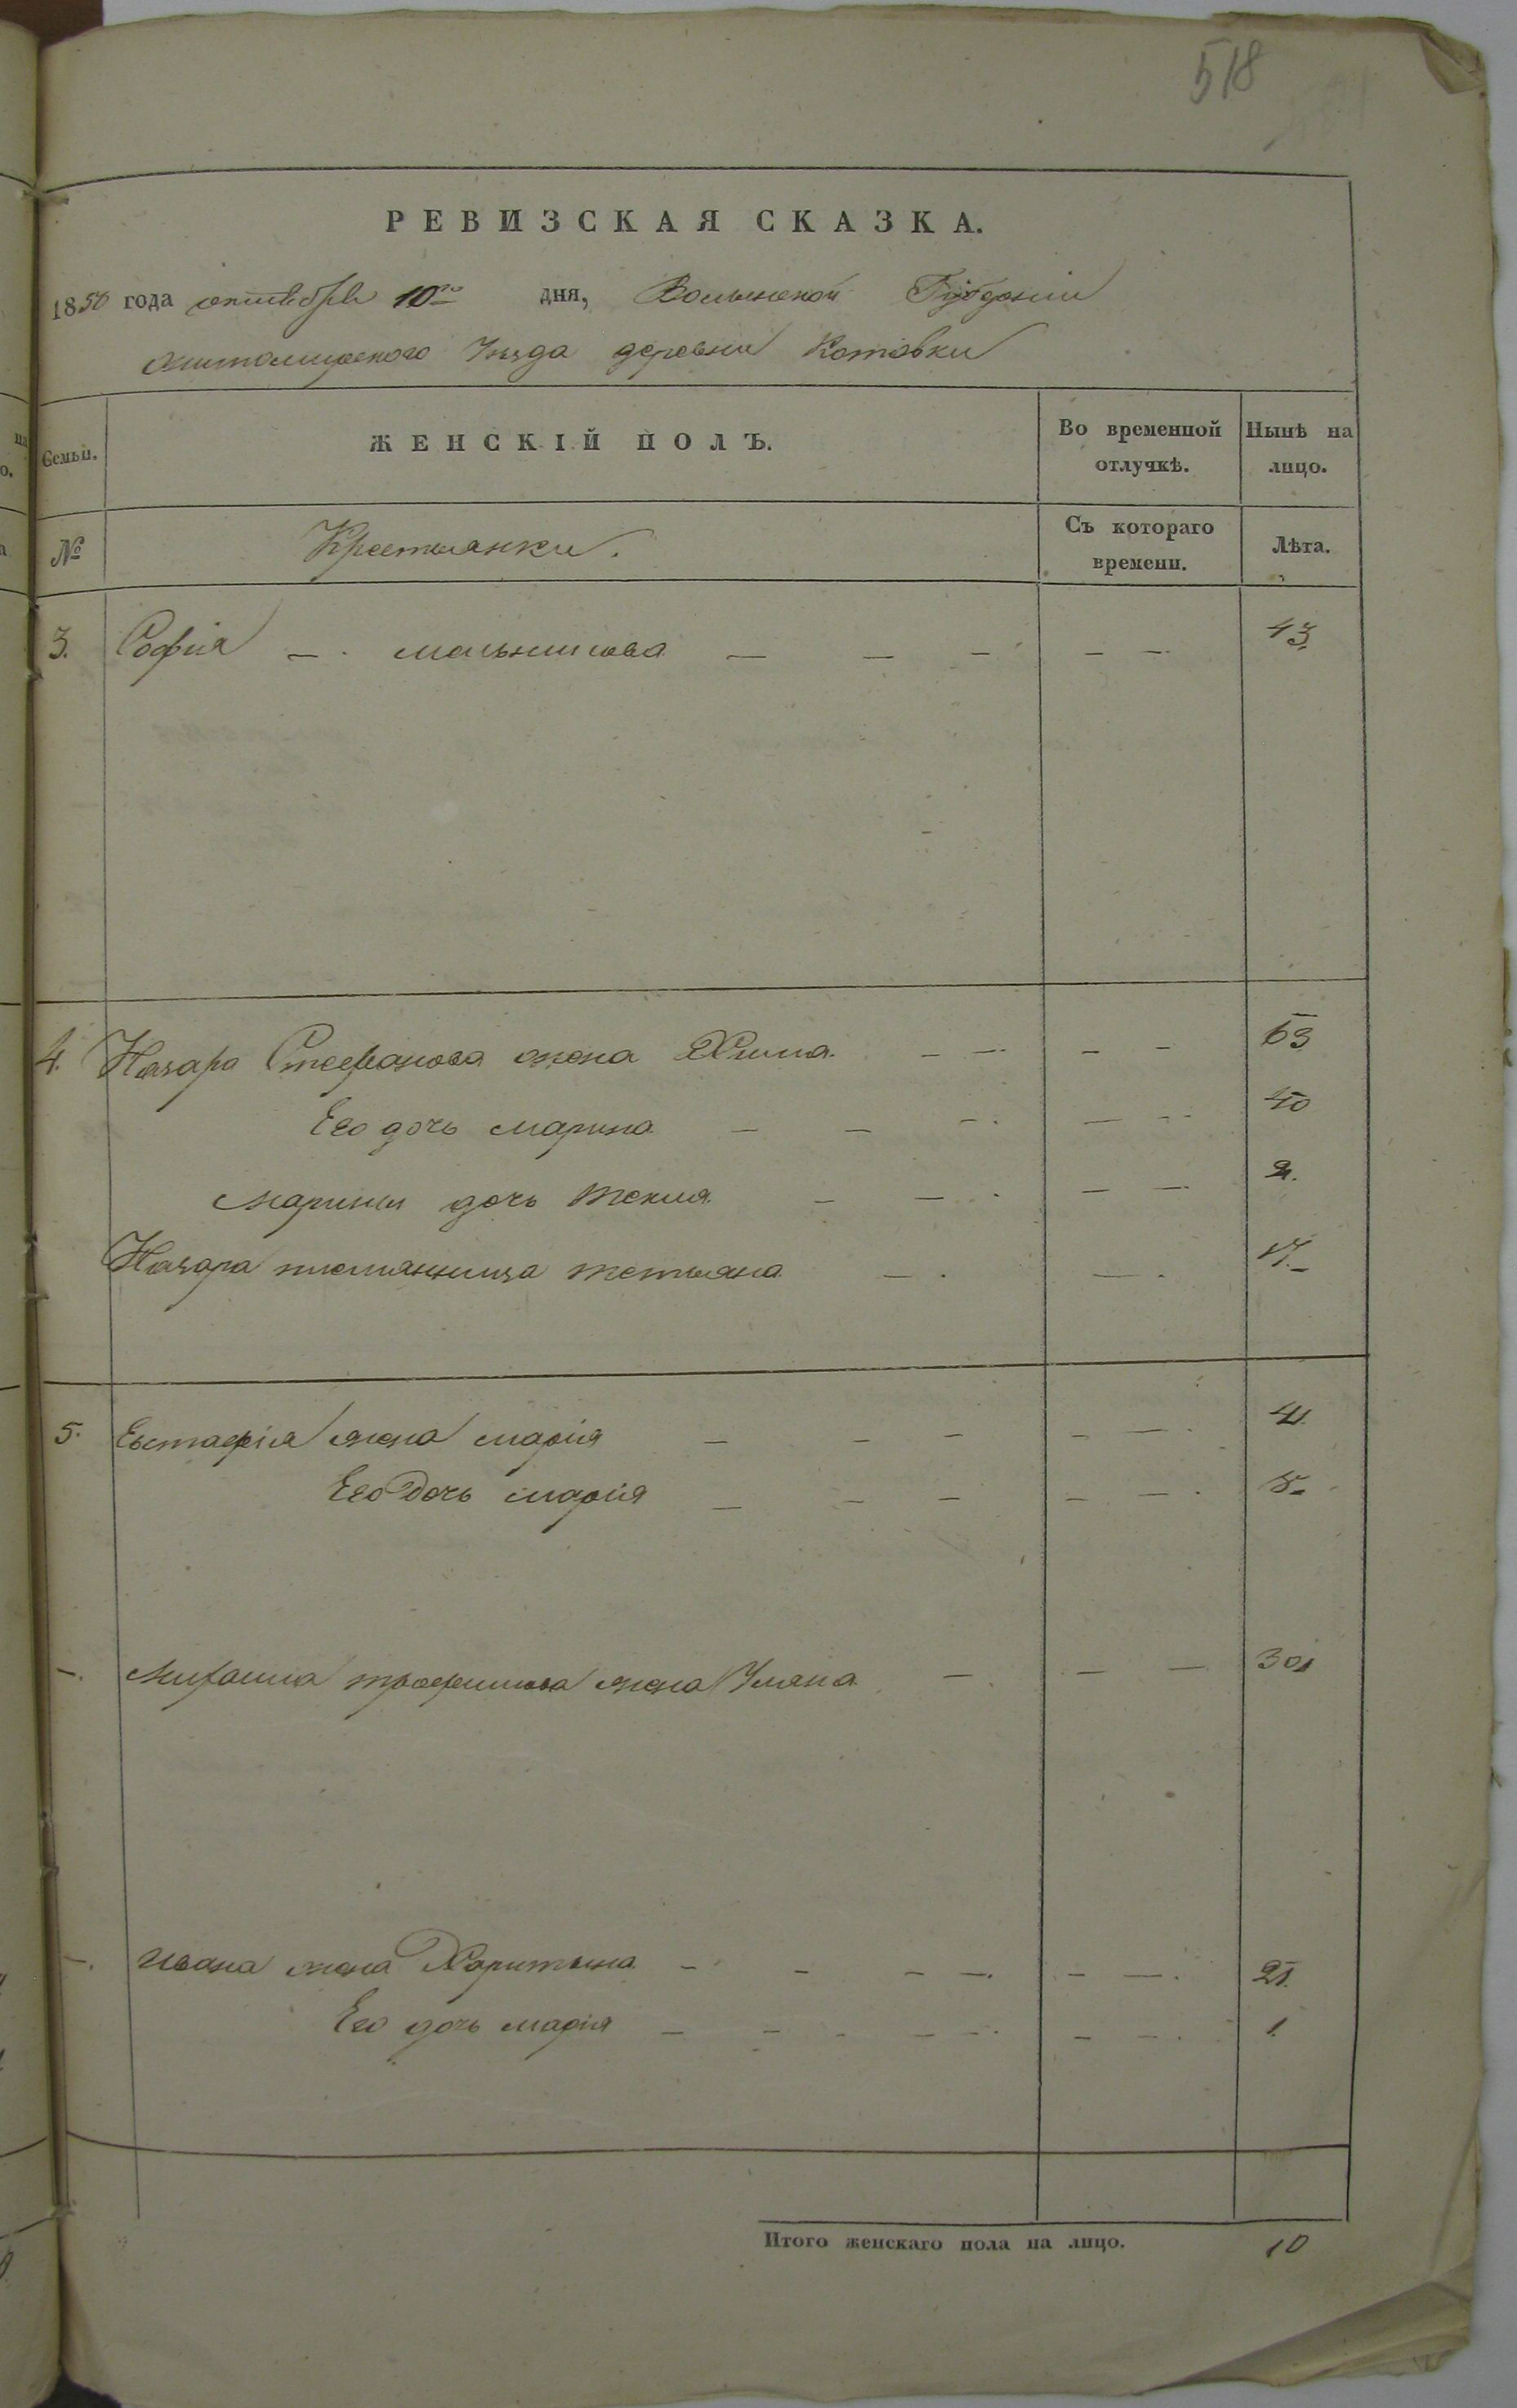 518
РЕВИЗСКАЯ СКАЗКА.
1850 года октября 10го дня, Волынской Губернии
Житомирского Уезда деревни Котовки
Семьи. ЖЕНСКІЙ ПОЛЪ. Во временной отлучкѣ. Нынѣ на лицо.
№ Крестьянки. Съ котораго времени. Лѣта.
3. Софія — — — — — — 43
4. Назара Стефанова жена Хима — — — — 63
Его дочь Марина — — — — — 40
Марины дочь Текля — — — — 2.
Назара племянница Тетьяна — —
5. Евстафія жена Марія — — — — —
Его Дочь Марія — — — — —
—. Михаила Трофимова жена Уляна — — — 30
—. Ивана жена Харитына — — — — — — 21.
Его дочь Марія — — — — — — 1.
Итого женскаго пола на лицо. 10